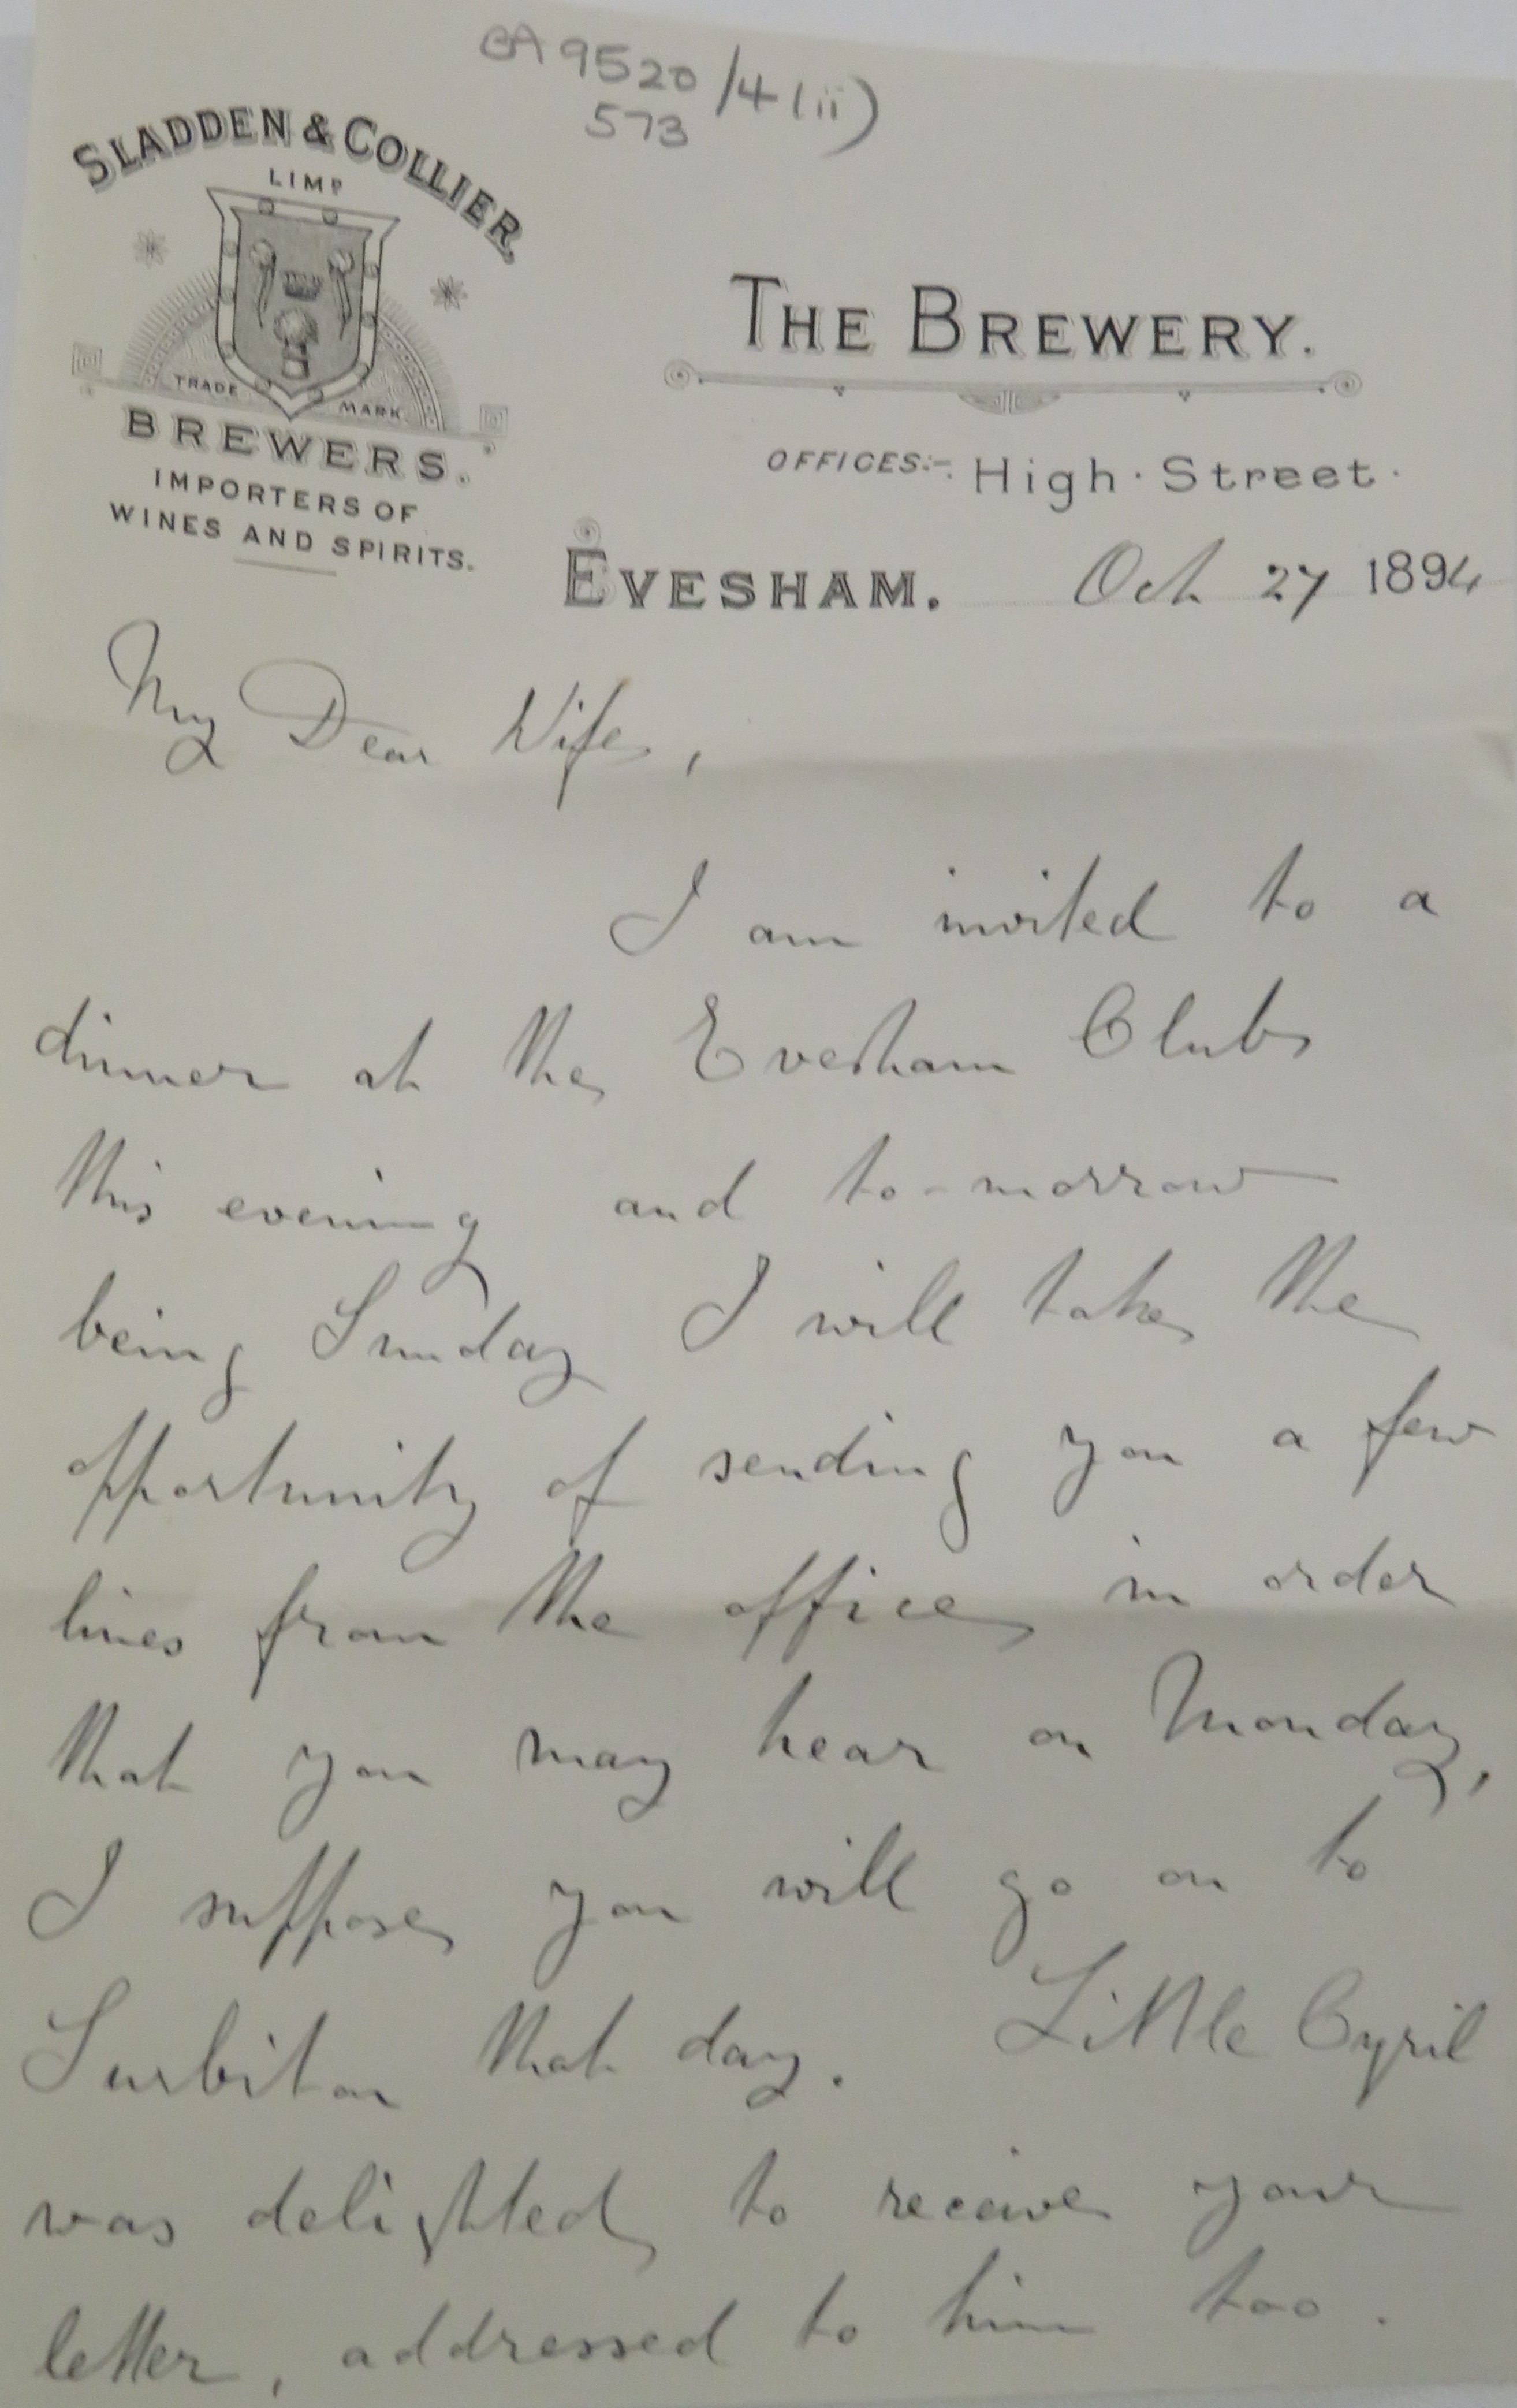 BA 9520/4(ii)
573
SLADDEN & COLLIER,
LIMD
TRADE MARK
BREWERS.
IMPORTERS OF
WINES AND SPIRITS.
THE BREWERY.
OFFICES:- High Street.
EVESHAM. Oct 27 1894
My Dear Wife,
I am invited to a
dinner at the Evesham Club
this evening and to-morrow
being Sunday I will take the
opportunity of sending you a few
lines from the office in order
that you may hear on Monday,
I suppose you will go on to
Surbiton that day. Little Cyril
was delighted to receive your
letter, addressed to him too.